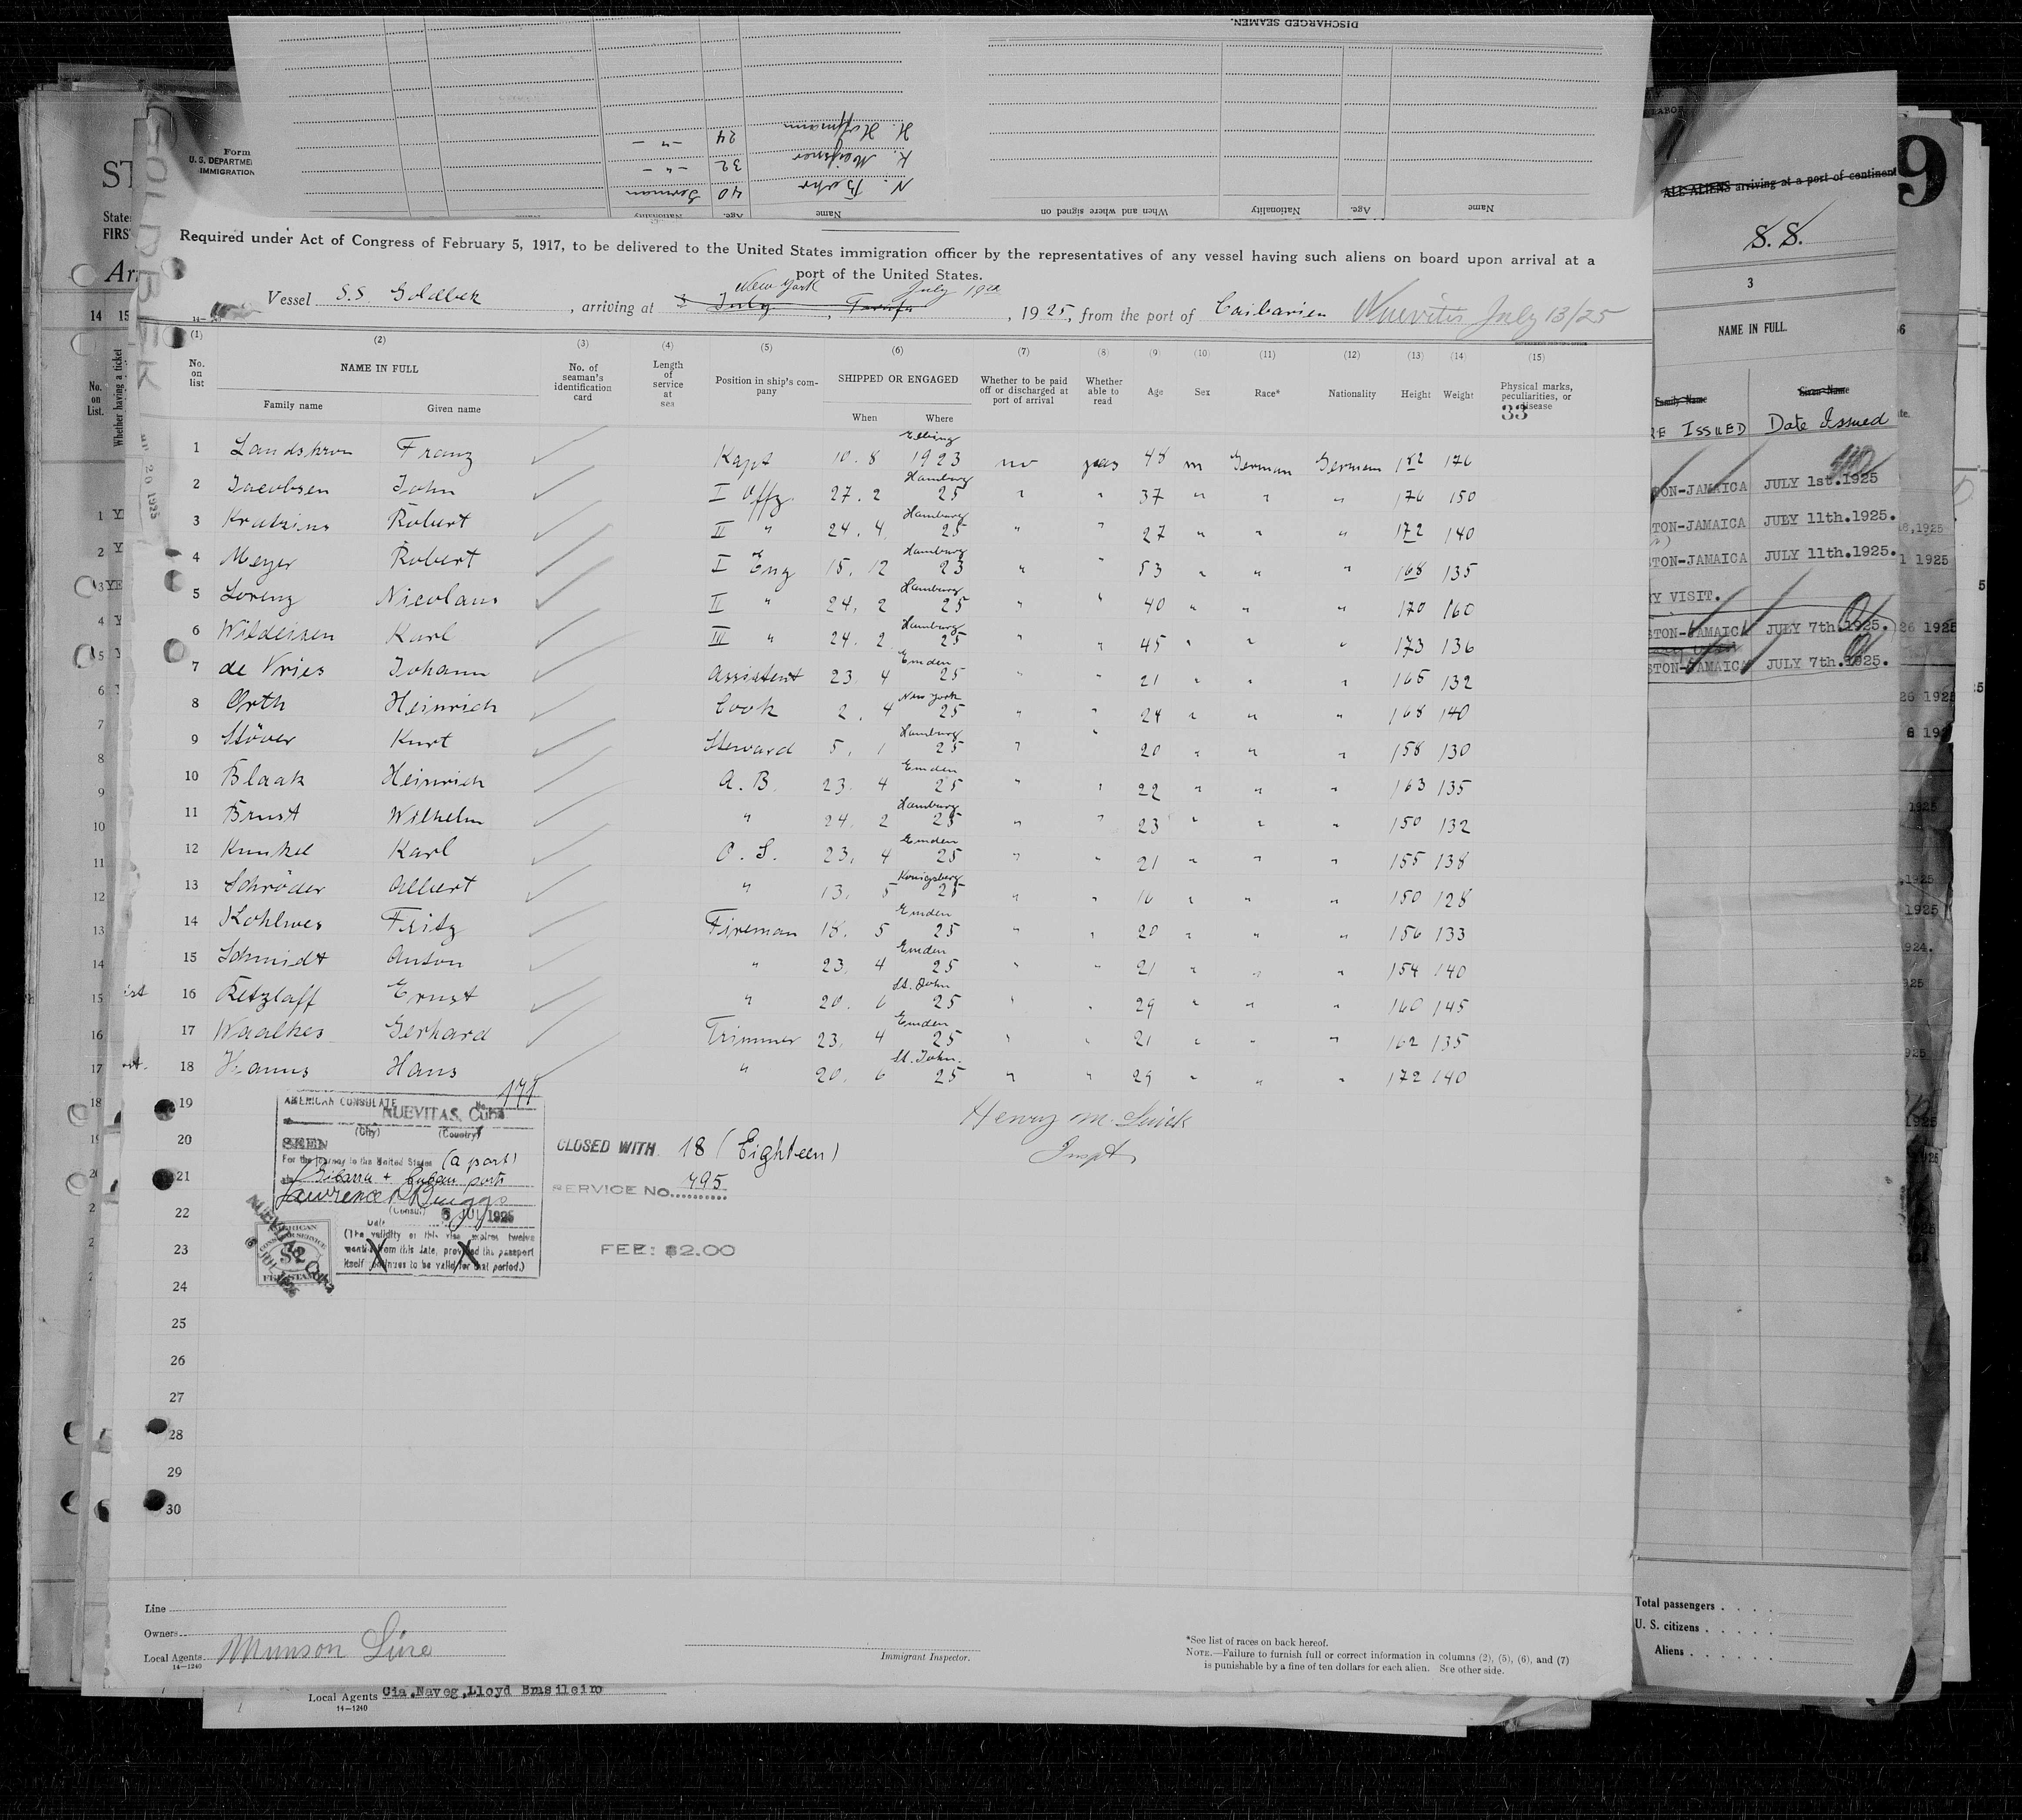 DISCHARGED SEAMEN.
H. Hoffmann 24 -"-
K. 32 -"-
N. Behr 40 German
Name Age. Nationality When and where signed on
Name Age. Nationality
Form
U.S. DEPARTME
IMMIGRATION
GOLDBEK
Required under Act of Congress of February 5, 1917, to be delivered to the United States immigration officer by the representatives of any vessel having such aliens on board upon arrival at a
port of the United States.
New York July 19
Vessel S.S. Goldbek, arriving at July, Tarafa, 1925, from the port of Caibarien Nuevitas July 13/25
(1) (2) (3) (4) (5) (6) (7) (8) (9) (10) (11) (12) (13) (14) (15)
No. on list NAME IN FULL No. of seaman's identification card Length of service at sea Position in ship's company SHIPPED OR ENGAGED Whether to be paid off or discharged at port of arrival Whether able to read Age Sex Race* Nationality Height Weight Physical marks, peculiarities, or disease
Family name Given name When Where
33
1 Landskron Franz Kapt 10. 8 Elbing 1923 no yes 48 m German German 182 176
2 Jacobsen John I Offz. 27. 2 Hamburg 25 " " 37 " " " 176 150
3 Robert II " 24. 4. Hamburg 25 " " 27 " " " 172 140
4 Meyer Robert I Eng 15. 12 Hamburg 23 " " 53 " " " 168 135
5 Lorenz Nicolaus II " 24. 2 Hamburg 25 " " 40 " " " 170 160
6 Karl III " 24. 2 Hamburg 25 " " 45 " " " 173 136
7 de Vries Johann Assistent 23. 4 Emden 25 " " 21 " " " 165 132
8 Orth Heinrich Cook 2. 4 New York 25 " " 24 " " " 168 140
9 Stöver Kurt Steward 5. 1 Hamburg 25 " " 20 " " " 158 130
10 Blaak Heinrich A.B. 23. 4 Emden 25 " " 22 " " " 163 135
11 Brust Wilhelm " 24. 2 Hamburg 25 " " 23 " " " 150 132
12 Kunkel Karl O.S. 23. 4 Emden 25 " " 21 " " " 155 138
13 Schröder Albert " 13. 5 Konigsberg 25 " " 16 " " " 150 128
14 Kohlwes Fritz Fireman 18. 5 Emden 25 " " 20 " " " 156 133
15 Schmidt Anton " 23. 4 Emden 25 " " 21 " " " 154 140
16 Retzlaff Ernst " 20. 6 St. John 25 " " 29 " " " 160 145
17 Waalkes Gerhard Trimmer 23. 4 Emden 25 " " 21 " " " 162 135
18 Hanns Hans " 20. 6 St. John. 25 " " 29 " " " 172 140
19
20
21
22
23
24
25
26
27
28
29
30
AMERICAN CONSULATE No.
NUEVITAS, Cuba
(City) (Country)
SEEN
For the journey to the United States (a port)
via Gibara + Cuban port
Lawrence P. Briggs
(Consul)
Date 6 JUL 1925
(The validity of this visa expires twelve
months from this date, provided the passport
itself continues to be valid for that period.)
NUEVITAS, Cuba
6 JUL 1925
AMERICAN
CONSULAR SERVICE
$2
FEE STAMP
CLOSED WITH 18 (Eighteen)
SERVICE No. 495
FEE: $2.00
Henry M.
Inspt.
Line
Owners
Local Agents Munson Line
14—1240
Immigrant Inspector.
*See list of races on back hereof.
NOTE.—Failure to furnish full or correct information in columns (2), (5), (6), and (7)
is punishable by a fine of ten dollars for each alien. See other side.
Local Agents Cia.Naveg.Lloyd Brasileiro
14—1240
ALL ALIENS arriving at a port of continent
S. S.
3
NAME IN FULL.
Family Name Given Name
RE ISSUED Date Issued
TON-JAMAICA JULY 1st.1925
TON-JAMAICA JULY 11th.1925.
TON-JAMAICA JULY 11th.1925.
RY VISIT.
STON-JAMAICA JULY 7th.1925.
STON-JAMAICA JULY 7th.1925.
Total passengers
U. S. citizens
Aliens
9